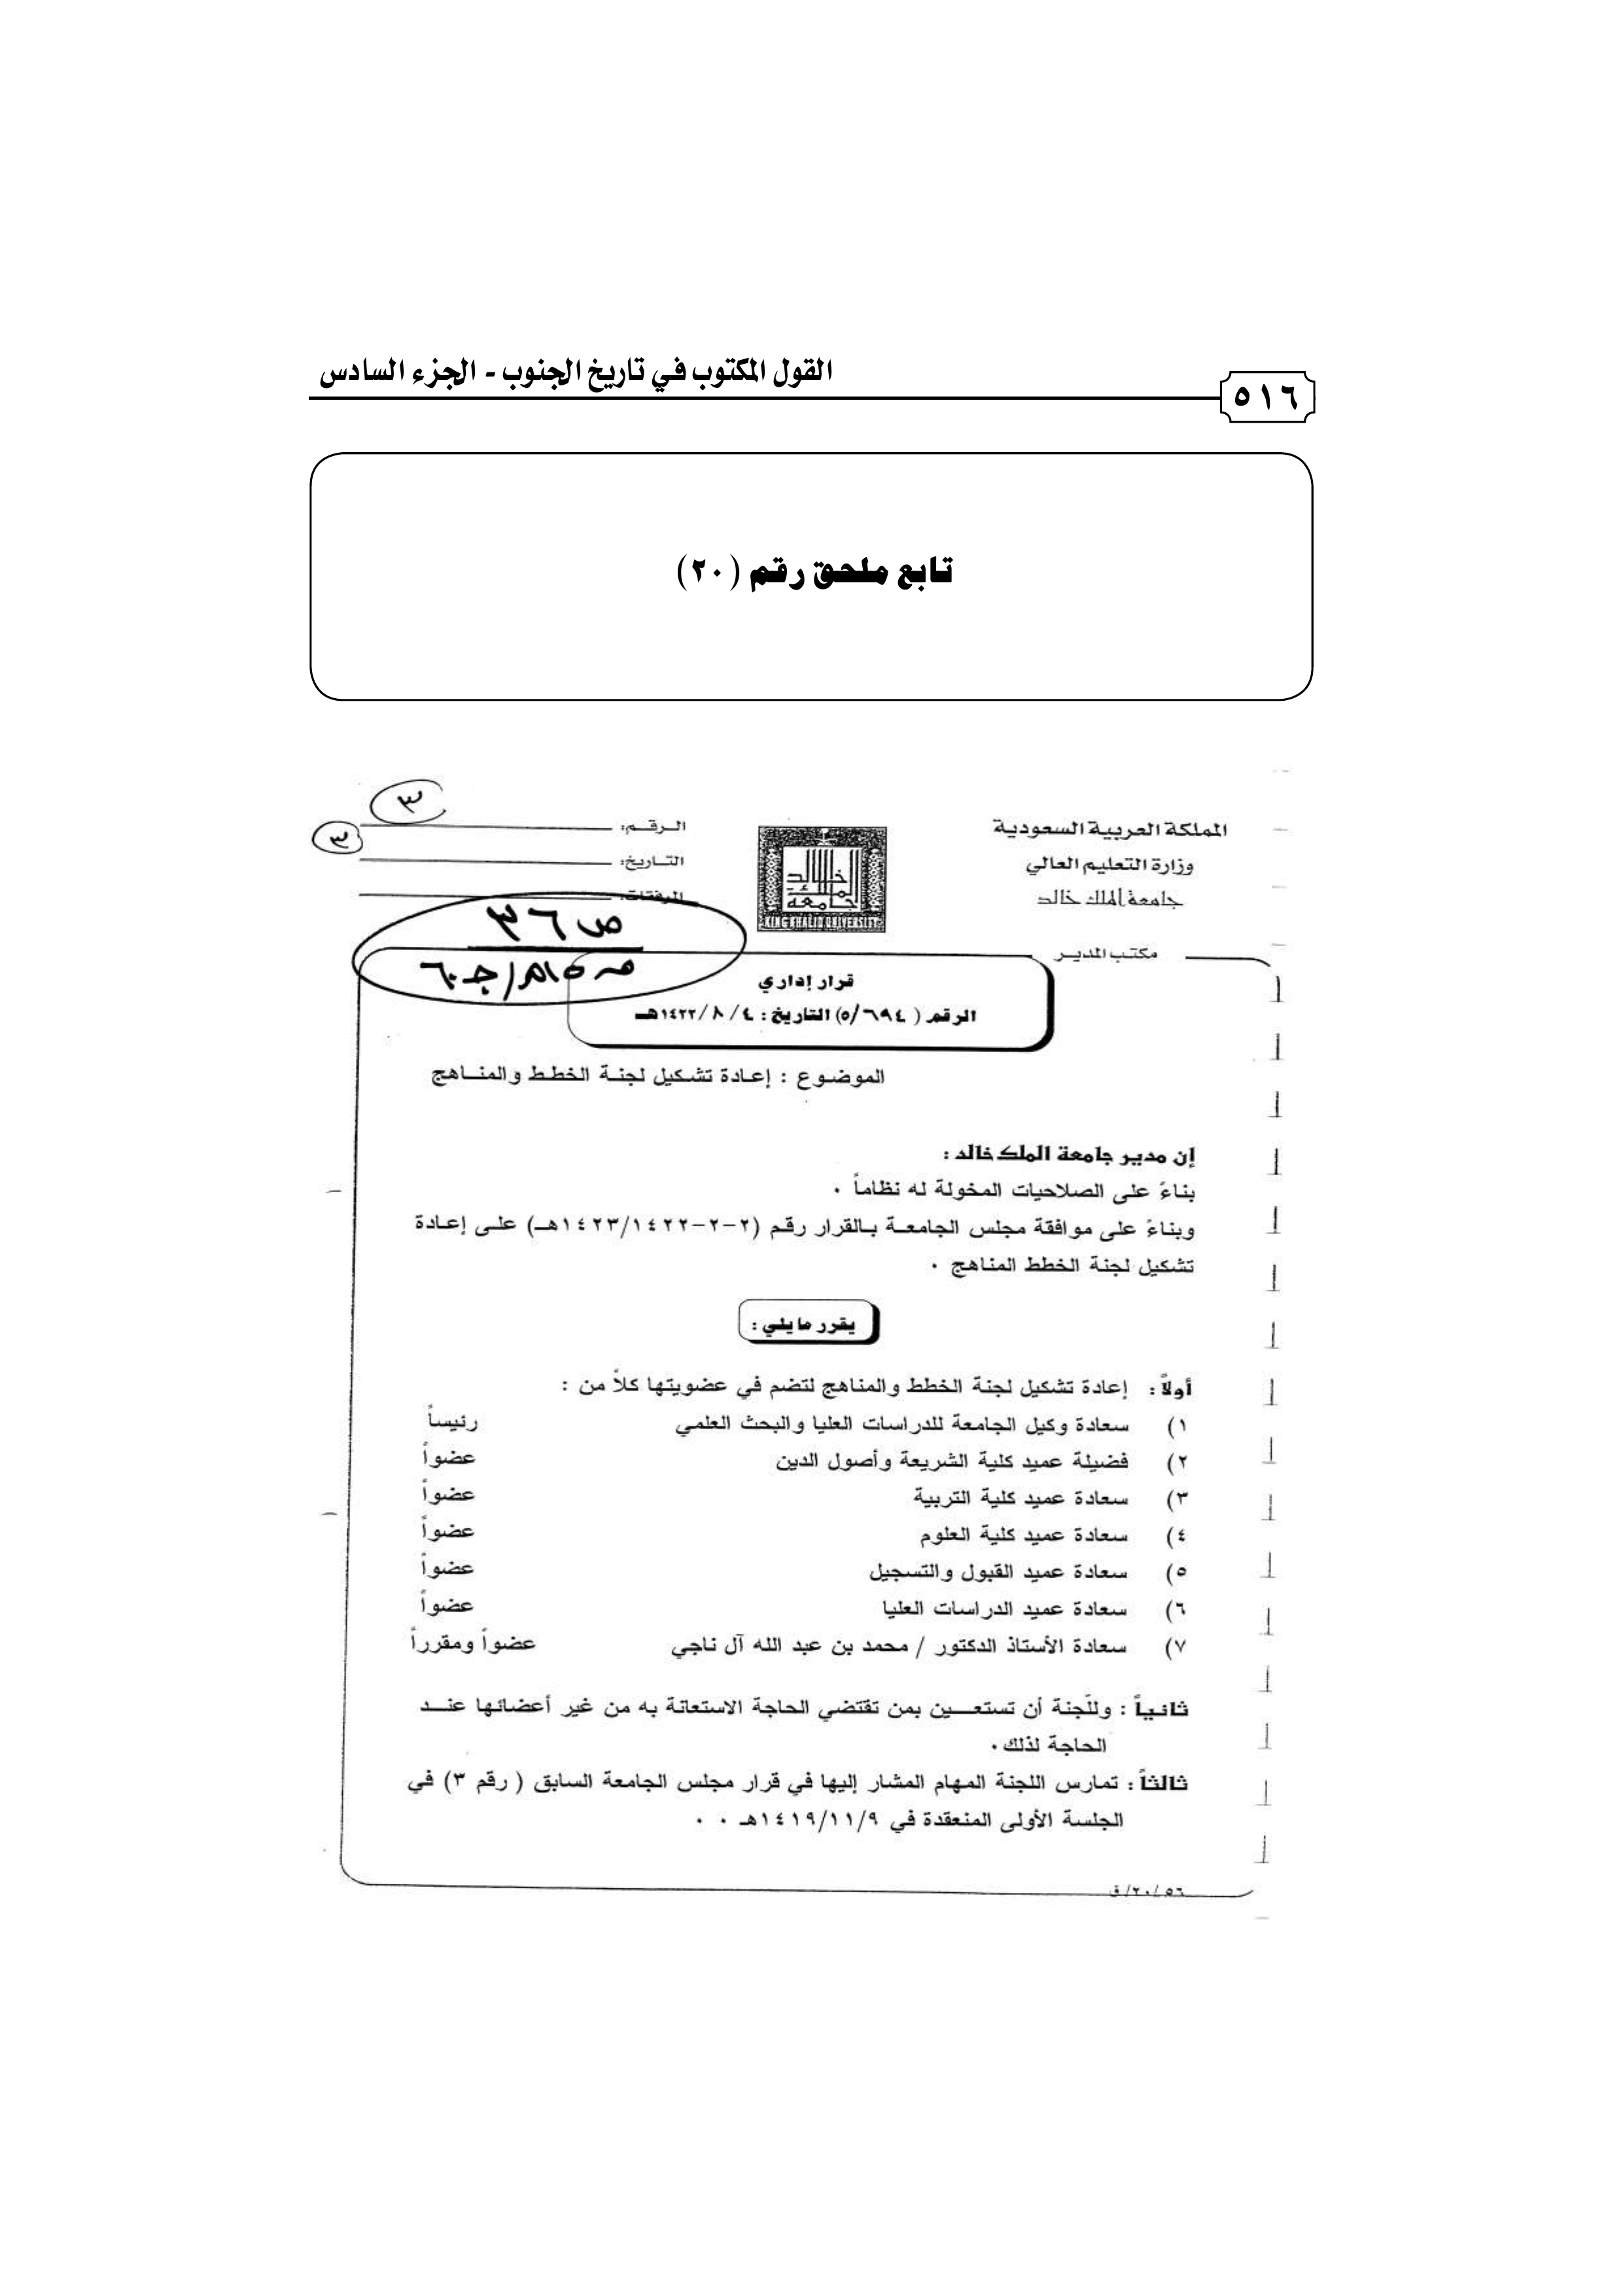 القول المكتوب في تاريخ الجنوب - الجزء السادس
٥١٦
تابع ملحق رقم (٢٠)
المملكة العربية السعودية
وزارة التعليم العالي
جامعة الملك خالد
مكتب المدير
جامعة الملك خالد
KING KHALID UNIVERSITY
الرقم:
التاريخ:
المرفقات:
٣
٣
ص ٣٦
قرار إداري
الرقم ( ٥/٦٩٤) التاريخ : ٤ / ٨ /١٤٢٢هـ
الموضوع : إعادة تشكيل لجنة الخطط والمناهج
إن مدير جامعة الملك خالد :
بناءً على الصلاحيات المخولة له نظاماً .
وبناءً على موافقة مجلس الجامعة بالقرار رقم (٢-٢-١٤٢٣/١٤٢٢هـ) على إعادة
تشكيل لجنة الخطط المناهج .
يقرر ما يلي :
أولاً : إعادة تشكيل لجنة الخطط والمناهج لتضم في عضويتها كلاً من :
١) سعادة وكيل الجامعة للدراسات العليا والبحث العلمي رئيساً
٢) فضيلة عميد كلية الشريعة وأصول الدين عضواً
٣) سعادة عميد كلية التربية عضواً
٤) سعادة عميد كلية العلوم عضواً
٥) سعادة عميد القبول والتسجيل عضواً
٦) سعادة عميد الدراسات العليا عضواً
٧) سعادة الأستاذ الدكتور / محمد بن عبد الله آل ناجي عضواً ومقرراً
ثانياً : وللّجنة أن تستعين بمن تقتضي الحاجة الاستعانة به من غير أعضائها عند
الحاجة لذلك .
ثالثاً : تمارس اللجنة المهام المشار إليها في قرار مجلس الجامعة السابق ( رقم ٣) في
الجلسة الأولى المنعقدة في ١٤١٩/١١/٩هـ . .
٥٦/٢٠/ق